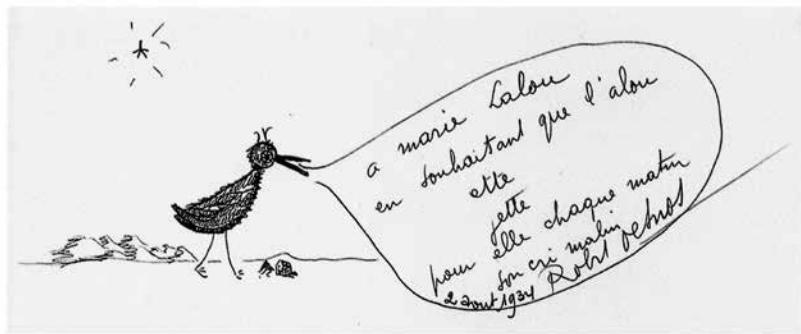 a marie Lalou
en souhaitant que l'alou
ette
jette
pour elle chaque matin
son cri malin
2 aout 1934 Robert Desnos